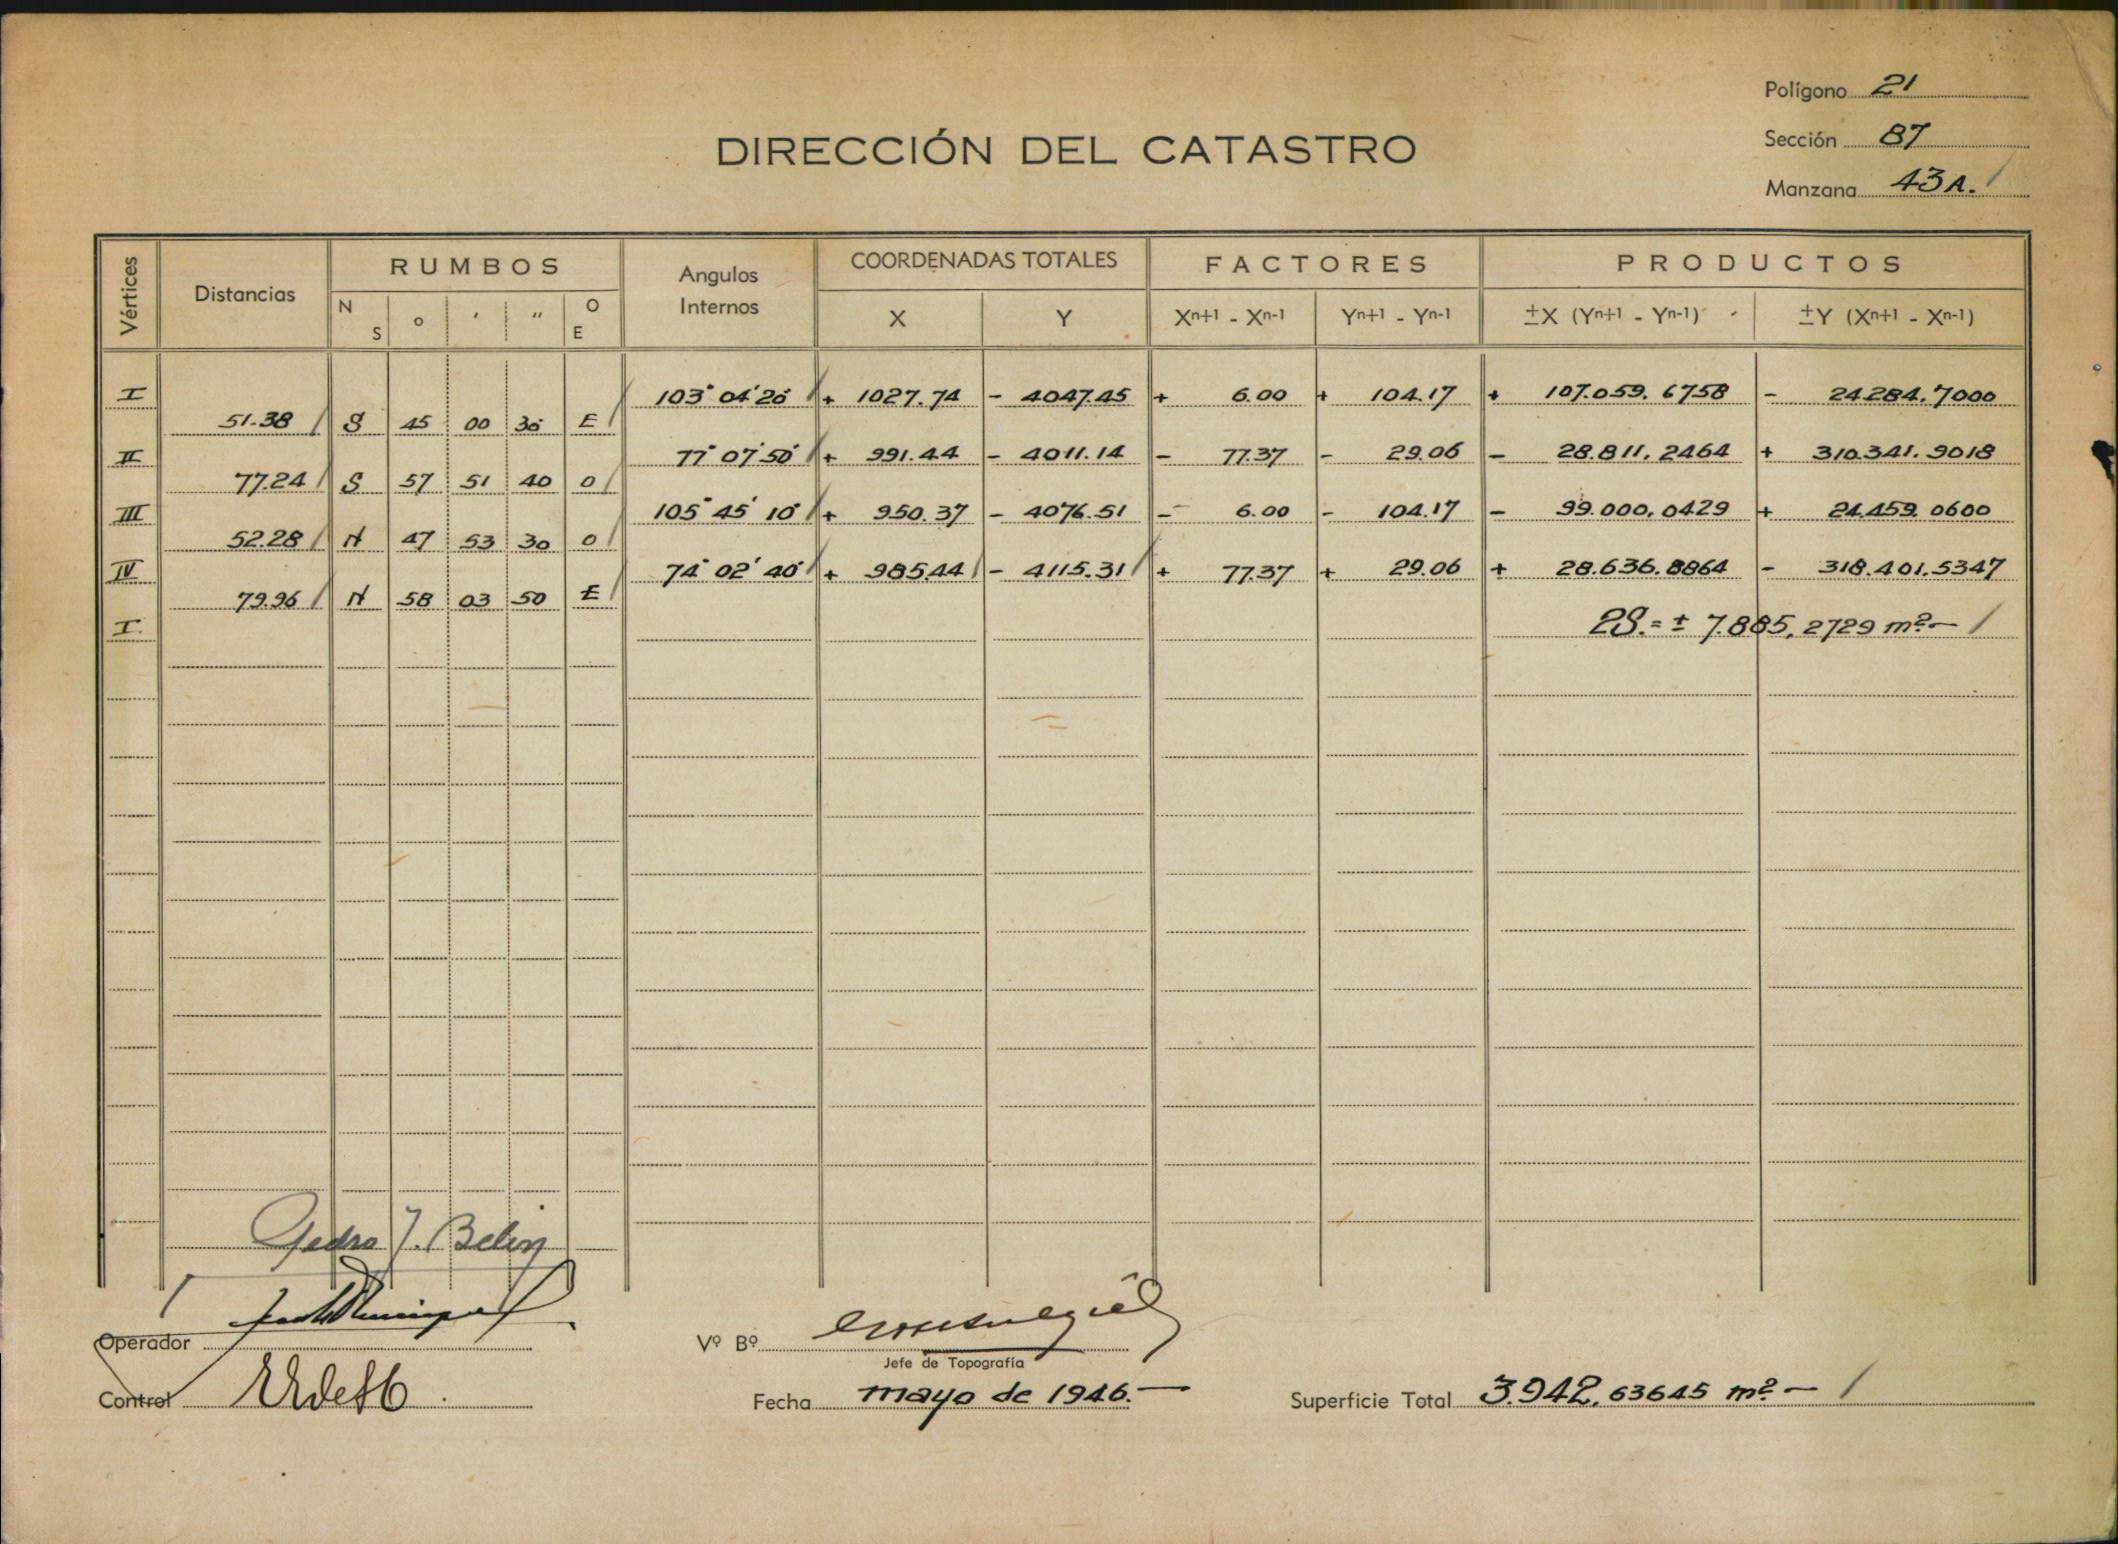 Polígono 21
DIRECCIÓN DEL CATASTRO
Sección 87
Manzana 43 A.
Vértices Distancias RUMBOS Angulos Internos COORDENADAS TOTALES FACTORES PRODUCTOS
N S o ' " O E X Y Xn+1 - Xn-1 Yn+1 - Yn-1 ±X (Yn+1 - Yn-1) ±Y (Xn+1 - Xn-1)
I 103° 04' 20" + 1027.74 - 4047.45 + 6.00 + 104.17 + 107.059.6758 - 24.284.7000
51.38 S 45 00 30 E
II 77° 07' 50" + 991.44 - 4011.14 - 77.37 - 29.06 - 28.811,2464 + 310.341.9018
77.24 S 57 51 40 O
III 105° 45' 10" + 950.37 - 4076.51 - 6.00 - 104.17 - 99.000,0429 + 24.459.0600
52.28 N 47 53 30 O
IV 74° 02' 40" + 985.44 - 4115.31 + 77.37 + 29.06 + 28.636.8864 - 318.401.5347
79.96 N 58 03 50 E
I. 2S. = ± 7.885,2729 m²-
Pedro J.
Operador
Vº Bº
Jefe de Topografía
Control
Fecha mayo de 1946.-
Superficie Total 3.942,63645 m²-